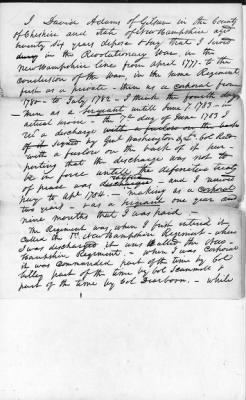 I David Adams of Gilsum in the County
of Cheshire and state of New Hampshire aged
seventy six years depose & say that I served
in the Revolutionary War, in the
New Hampshire line from April 1777 to the
conclusion of the War, in the same Regiment
first as a private - then as a corporal from
1780 to July 1782 - I think the
then as a Sergeant until June 7 1783 - in
actual service - the 7th day of June 1783 I
a discharge with a furlow on the back
of it signed by Genl Washington & Lt Col
with a furlow on the back of it
porting that the discharge was not to
be in force untill the definitive
of peace was - and I
pay to Apl 1784 - ranking as a Corporal
two years - & as a sergeant one year and
nine months that I was paid -
The Regiment was, when I first entered it
called the 3d New Hampshire Regiment - when
I was discharged it was called the New
Hampshire Regiment. - when I was Corporal
it was commanded part of the time by Col
Cilley part of the time by Col Scammell &
part of the time by Col Dearborn. - while